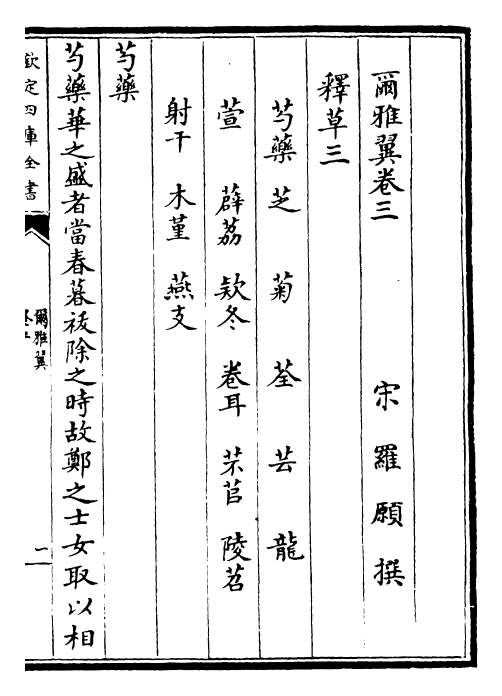 爾雅翼卷三
宋 羅 願 撰
釋草三
芍藥 芝 菊 荃 芸 龍
萱 薜荔 款冬 卷耳 芣苢 陵苕
射干 木堇 燕支
芍藥
芍藥華之盛者當春暮祓除之時故鄭之士女取以相
欽定四庫全書
爾雅翼
卷三
二